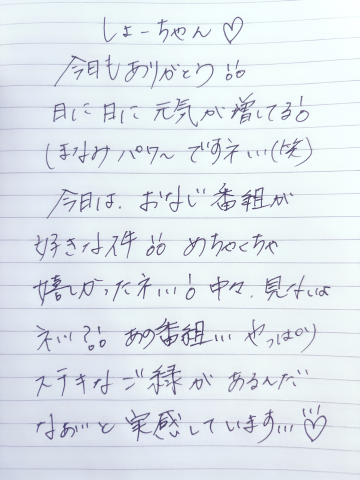 しょーちゃん♡
今日もありがとう!!
日に日に元気が増してる!
(まなみパワ〜ですネ…(笑)
今日は、おなじ番組が
好きな件!! めちゃくちゃ
嬉しかったネ…! 中々、見ないよ
ネ…?!! あの番組… やっぱり
ステキなご縁があるんだ
なぁ…と実感しています…♡